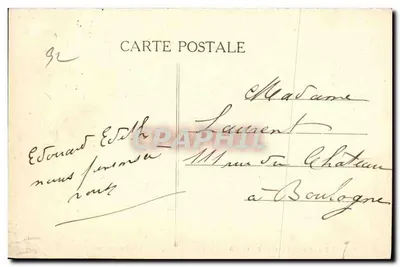 CARTE POSTALE
92
Madame
Laurent
111 rue du Château
à Boulogne
Edouard, Edith
nous pensons à
vous
CPAPHIL